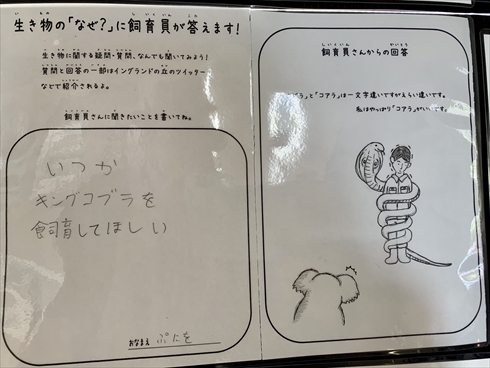 生き物の「なぜ?」に飼育員が答えます!
生き物に関する疑問・質問、なんでも聞いてみよう!
質問と回答の一部はイングランドの丘のツイッター
などで紹介されるよ。
飼育員さんに聞きたいことを書いてね。
いつか
キングコブラを
飼育してほしい
おなまえ ぷたを
飼育員さんからの回答
ブラ」と「コアラ」は一文字違いですがえらい違いです。
私はやっぱり「コアラ」がいいです。